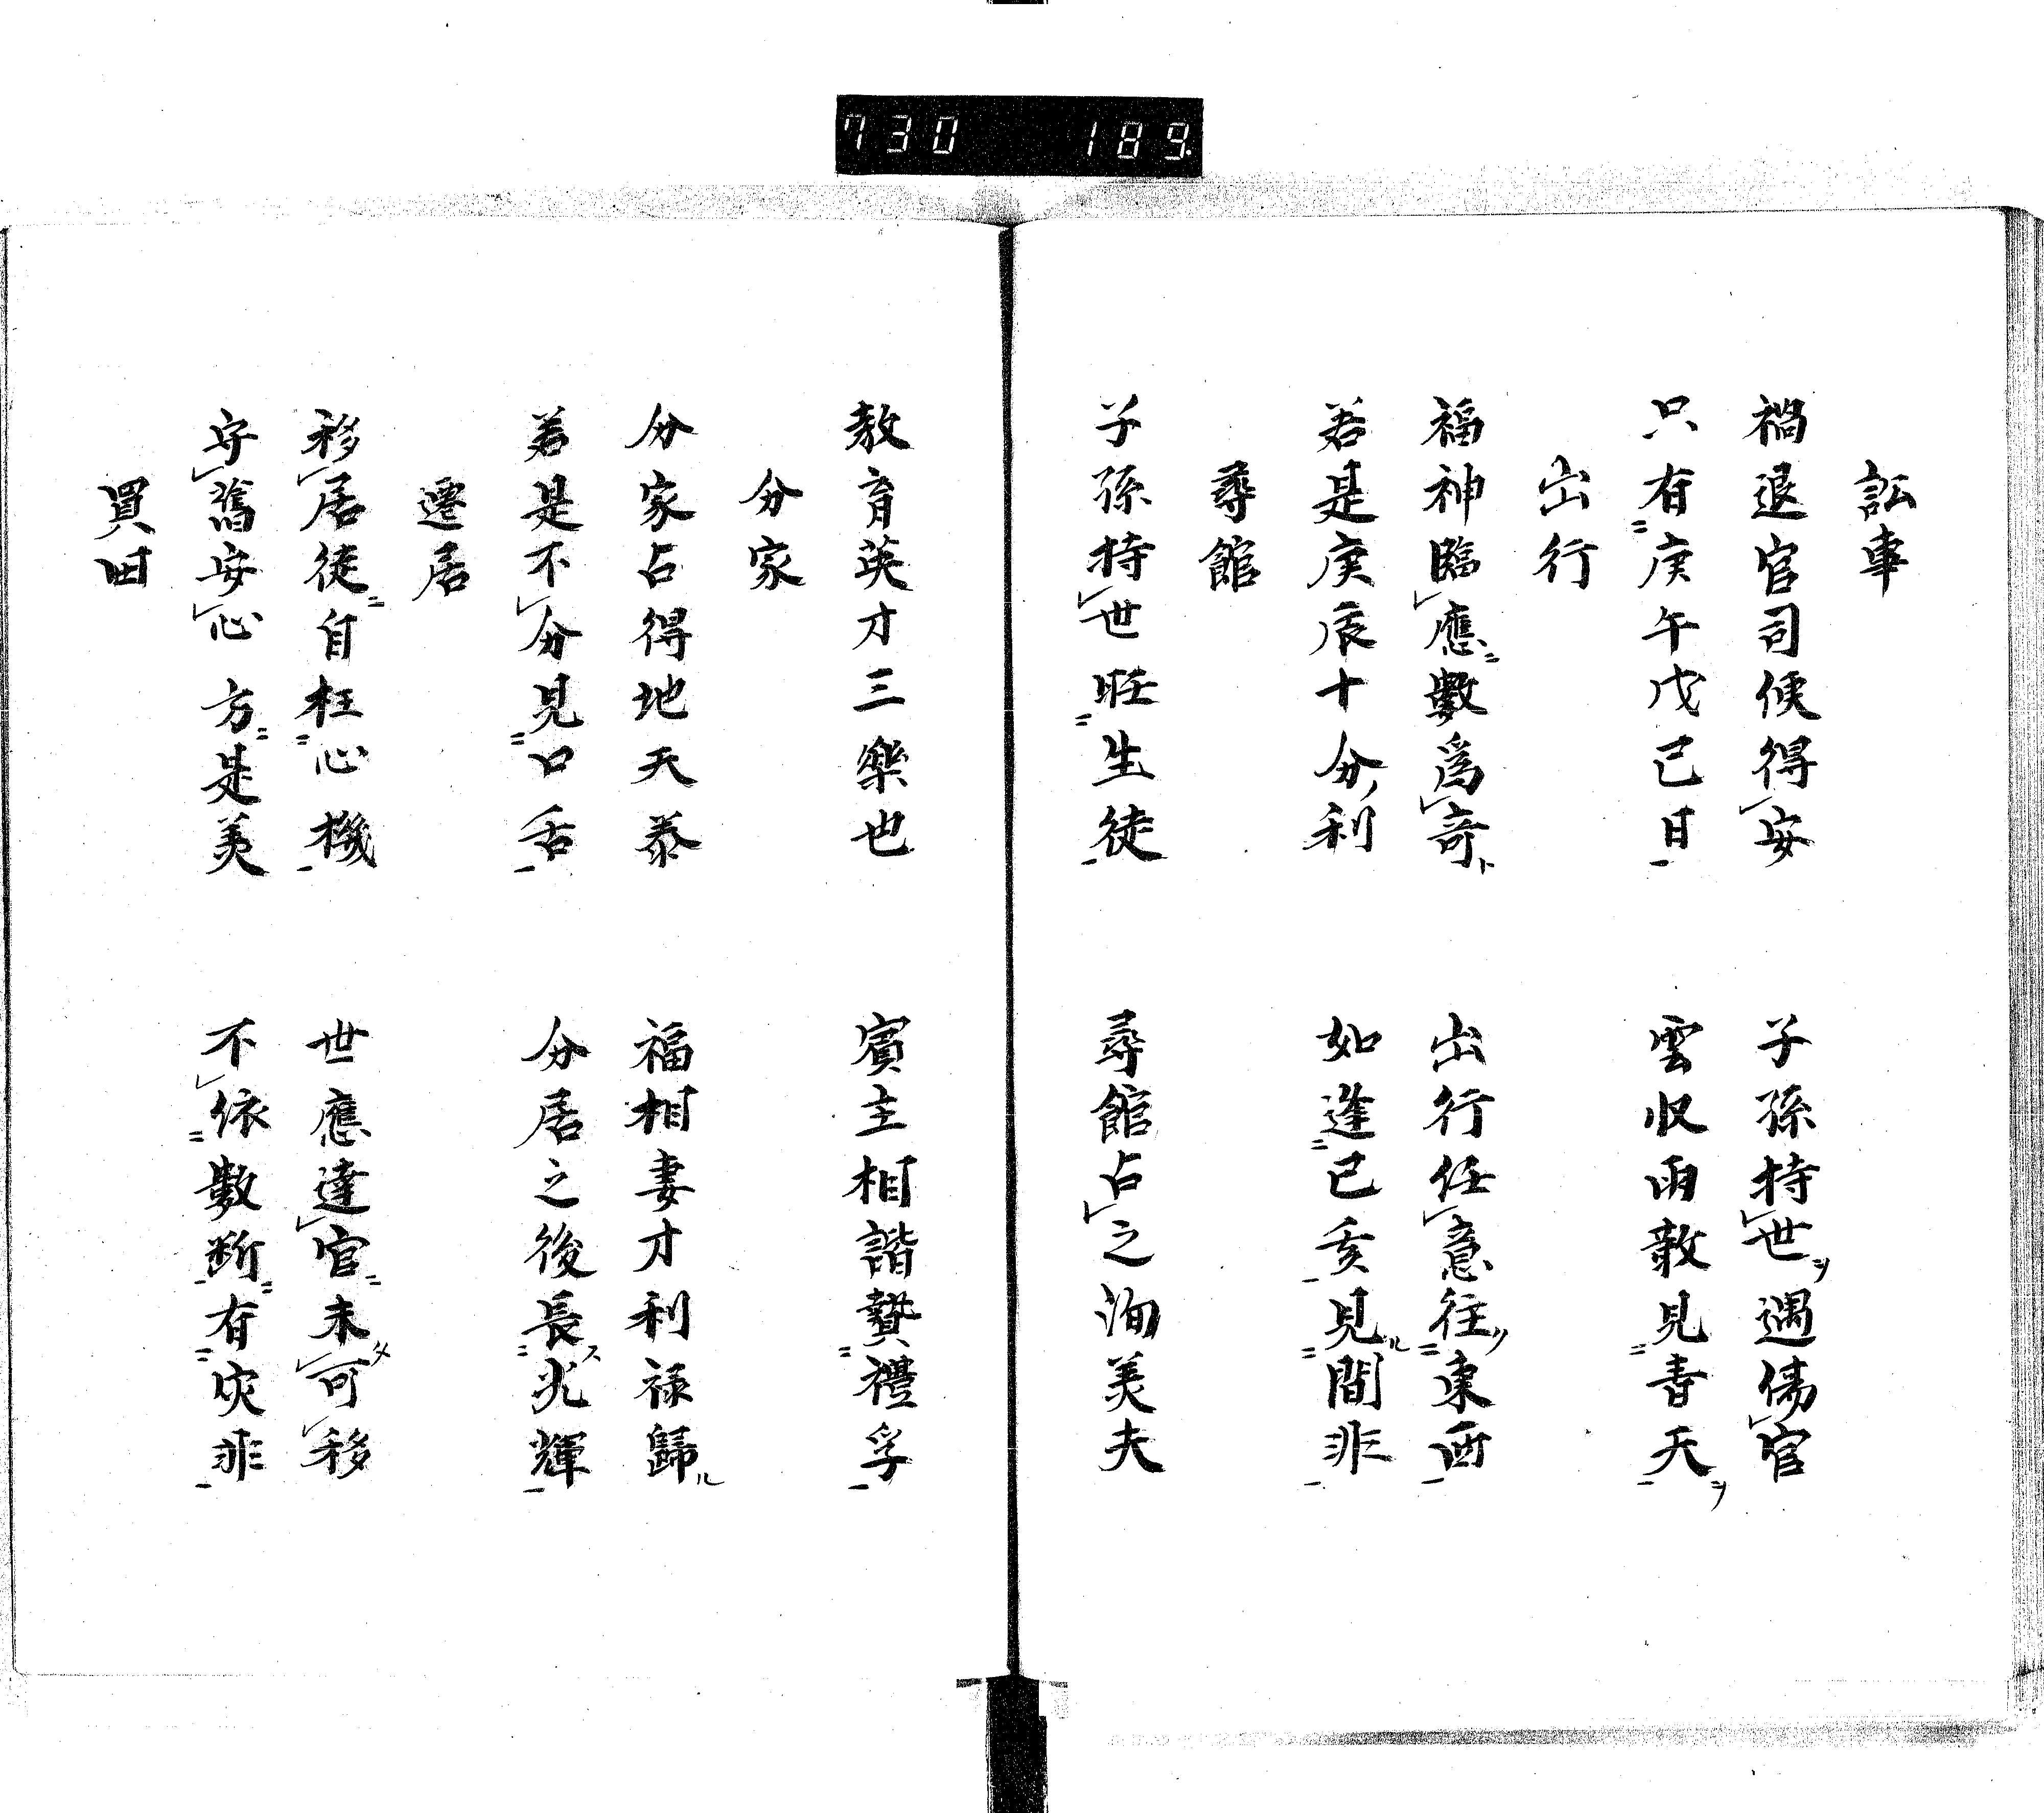 730 189.
訟事
禍退官司使得安 子孫持世遇傷官
只有庚午戊己日 雲収雨散見青天
出行
福神臨應數為奇 出行任意往東西
若是庚辰十分利 如逢己亥見間非
尋館
子孫持世旺生徒 尋館占之洵美夫
教育英才三樂也 賓主相諧贄禮孚
分家
分家占得地天泰 福相妻才利祿歸
若是不分見口舌 分居之後長光輝
遷居
移居徒自枉心機 世應達官未可移
守舊安心方是美 不依數斷有災非
買田